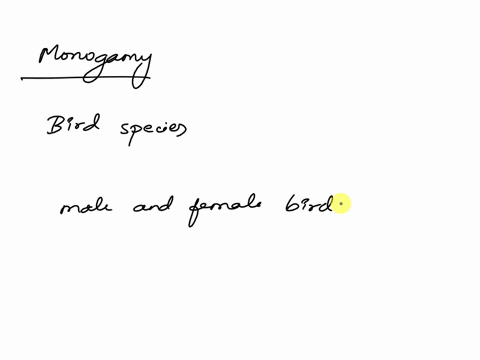 Monogamy
Bird species
male and female bird